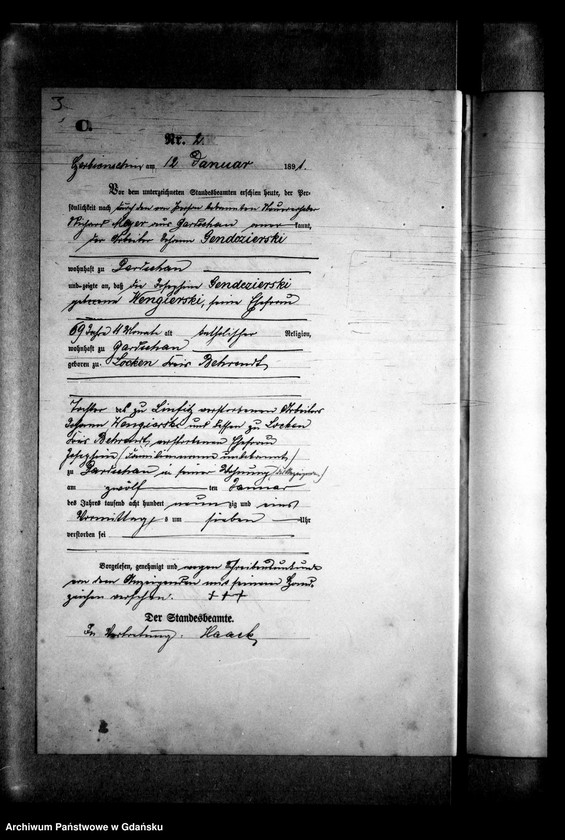 3.
C.
Nr. 2.
am 12 Januar 1891.
Vor dem unterzeichneten Standesbeamten erschien heute, der Per-
sönlichkeit nach durch den
Richard Meyer aus Gartschau kannt,
der Arbeiter Johann Gendezierski
wohnhaft zu Gartschau
und zeigte an, daß die Josephine Gendezierski
geborene Wengierski, seine Ehefrau
69 Jahre 4 Monate alt katholischer Religion,
wohnhaft zu Gartschau
geboren zu Locken Kreis Behrendt,
Tochter des zu verstorbenen Arbeiters
Johann Wengierski und dessen zu Locken
Kreis Behrendt, verstorbenen Ehefrau
Josephine (Familienname unbekannt)
zu Gartschau in seiner Wohnung
am zwölf ten Januar
des Jahres tausend acht hundert neun zig und eins
Vormittags um sieben Uhr
verstorben sei
Vorgelesen, genehmigt und wegen Schreibensunkunde
von dem Anzeigenden mit seinem Hand-
zeichen versehen. +++
Der Standesbeamte.
In Vertretung. Haack
Archiwum Państwowe w Gdańsku